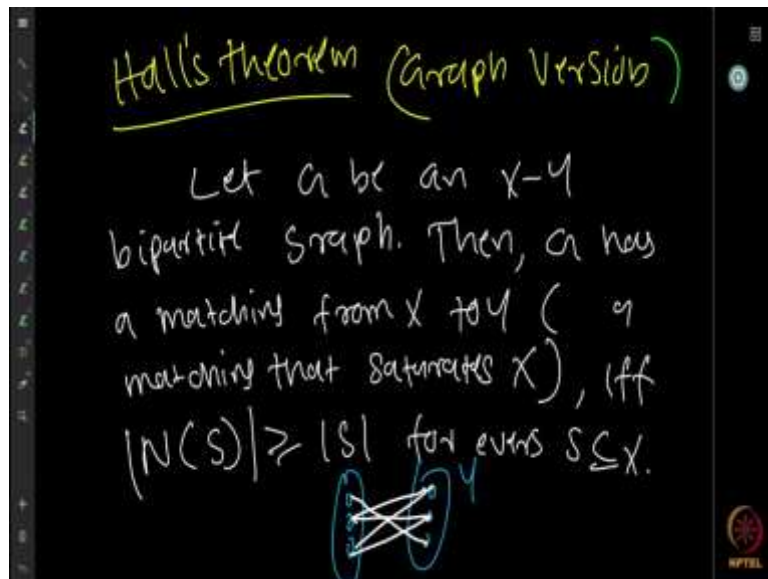 Hall's theorem (Graph Version)
Let G be an X-Y
bipartite graph. Then, G has
a matching from X to Y ( a
matching that saturates X), iff
|N(S)| ≥ |S| for every S ⊆ X.
Y
NPTEL